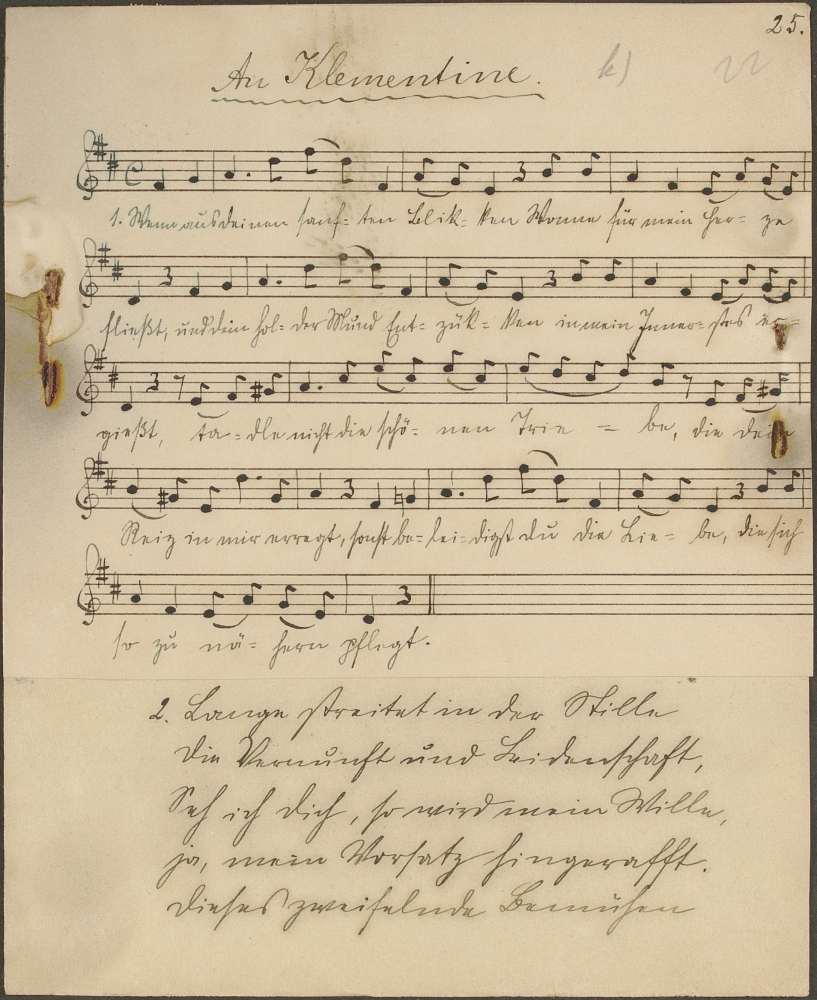 25.
An Klementine. k) 22
1. Wenn aus deinen sanf= ten Blik= ken Wonne für mein Her= ze
fließt, und dein hol= der Mund Ent= zük= ken in mein Inner= stes er=
gießt, ta= dle nicht die schö= nen Trie = be, die dein
Reiz in mir erregt, sonst be= lei= digst du die Lie= be, die sich
so zu nä= hern pflegt.
2. Lange streitet in der Stille
die Vernunft und Leidenschaft,
Seh ich dich, so wird mein Wille,
ja, mein Vorsatz hingerafft.
Dieses zweifelnde Bemühen